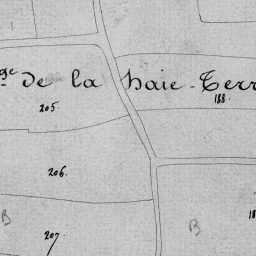 ge de la haie-Terr
188.
205.
206.
B
B
18
207